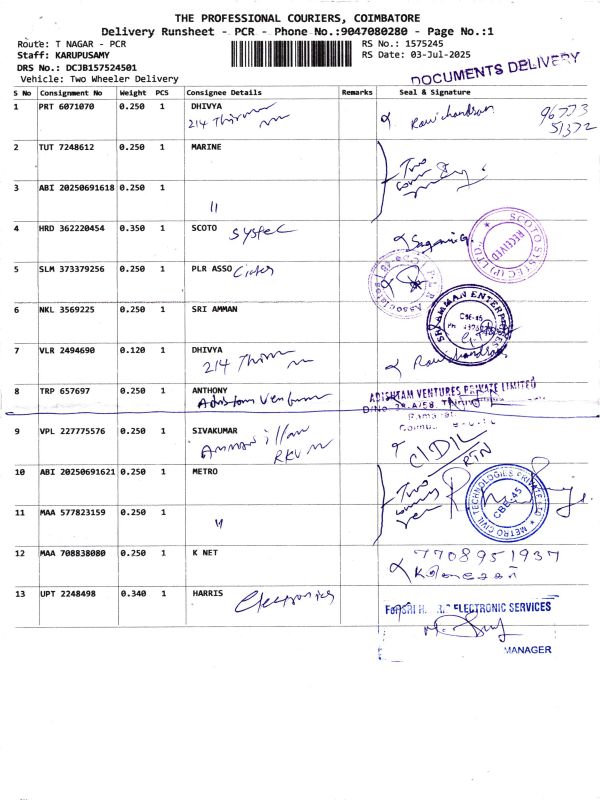 THE PROFESSIONAL COURIERS, COIMBATORE
Delivery Runsheet - PCR - Phone No.:9047080280 - Page No.:1
Route: T NAGAR - PCR RS No.: 1575245
Staff: KARUPUSAMY RS Date: 03-Jul-2025
DRS No.: DCJB157524501
Vehicle: Two Wheeler Delivery
DOCUMENTS DELIVERY
S No Consignment No Weight PCS Consignee Details Remarks Seal & Signature
1 PRT 6071070 0.250 1 DHIVYA
214 Ravichandran 96773
51372
2 TUT 7248612 0.250 1 MARINE
Two
3 ABI 20250691618 0.250 1
"
4 HRD 362220454 0.350 1 SCOTO
SCOTO SYSTEC (P) LTD RECEIVED
5 SLM 373379256 0.250 1 PLR ASSO
6 NKL 3569225 0.250 1 SRI AMMAN
SRI AMMAN ENTERPRISES CBE-45
7 VLR 2494690 0.120 1 DHIVYA
214 Ravichandran
8 TRP 657697 0.250 1 ANTHONY
ADISHTAM VENTURES PRIVATE LIMITED
9 VPL 227775576 0.250 1 SIVAKUMAR
CIDIL
RTN
10 ABI 20250691621 0.250 1 METRO
Two
METRO CIVIL TECHNOLOGIES PRIVATE LTD CBE-45
11 MAA 577823159 0.250 1
"
12 MAA 708838080 0.250 1 K NET
7708951937
13 UPT 2248498 0.340 1 HARRIS
Electronics
ELECTRONIC SERVICES
MANAGER